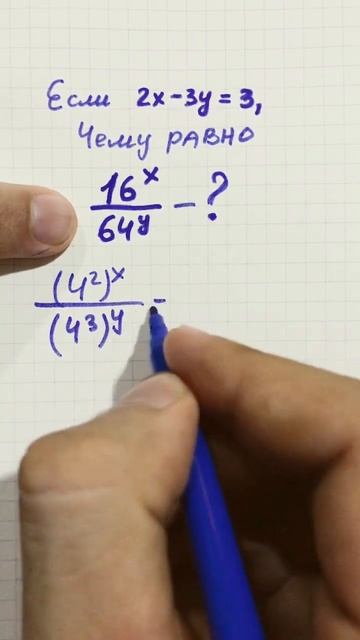 Если 2x-3y=3,
Чему РАВНО
16^x
64^y - ?
(4²)^x
(4³)^y =